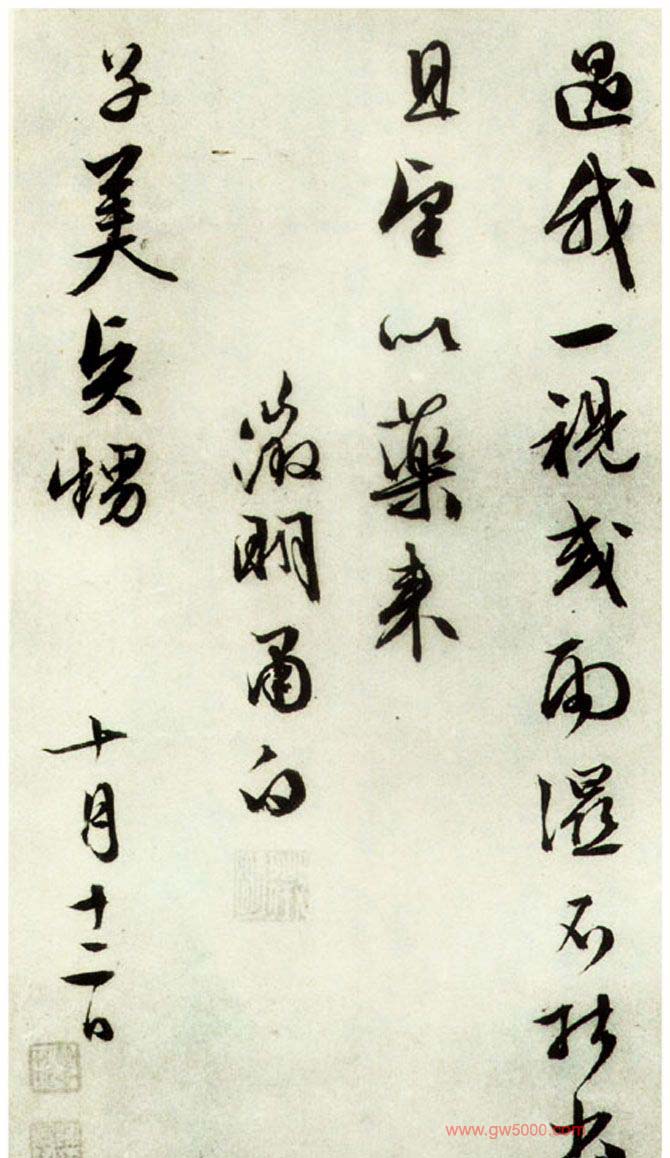 過我一視或雨濕不
且望以藥來
徵明白
子美賢甥
十月十二日
www.gw5000.com